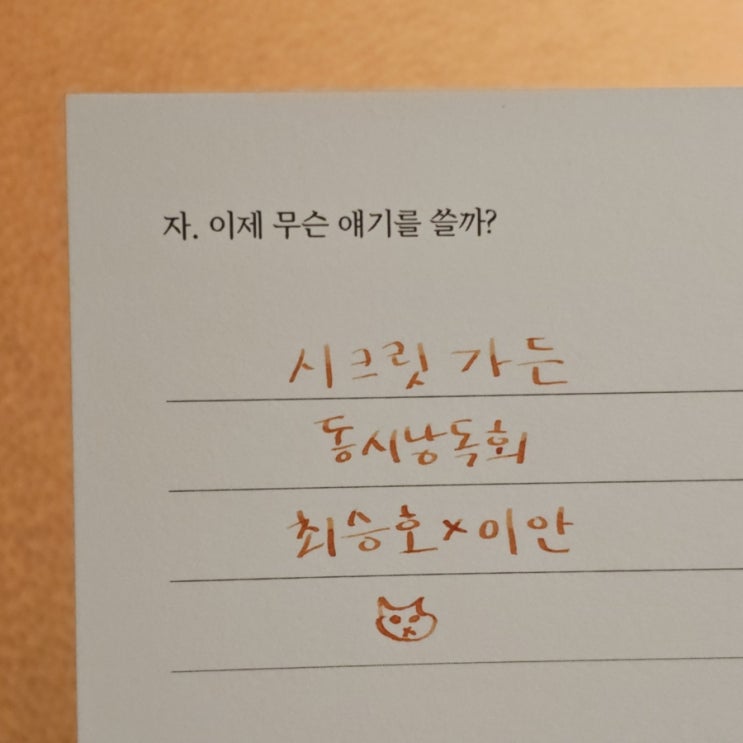 자. 이제 무슨 얘기를 쓸까?
시크릿 가든
동시낭독회
최승호×이안